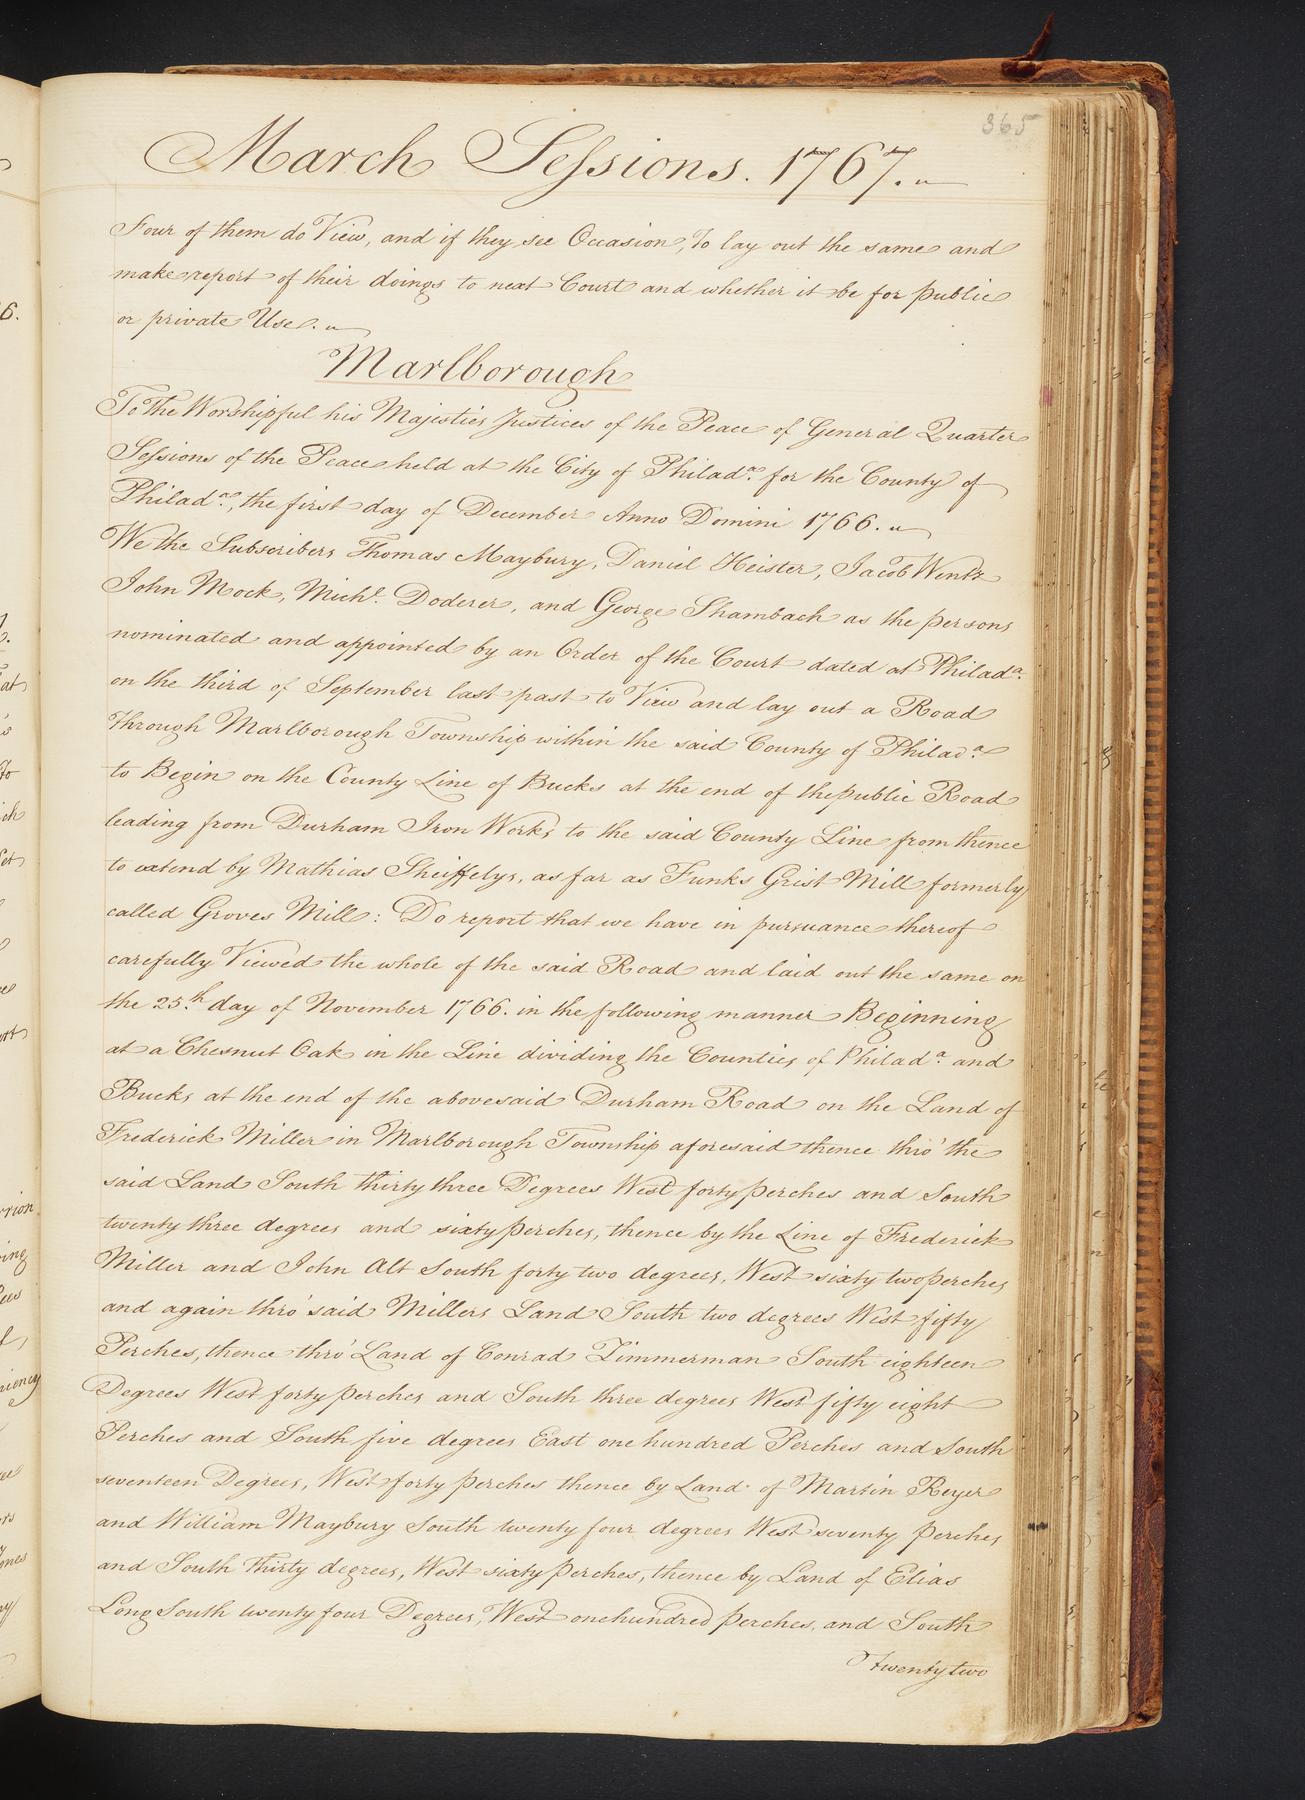 365
March Sessions. 1767.
Four of them do View, and if they see Occasion, To lay out the same and
make report of their doings to next Court and whether it be for public
or private Use.
Marlborough
To The Worshipful his Majesties Justices of the Peace of General Quarter
Sessions of the Peace held at the City of Philada. for the County of
Philada., the first day of December Anno Domini 1766.
We the Subscribers Thomas Maybury, Daniel Heister, Jacob Wentz
John Mock, Michl. Doderer, and George Shambach as the persons
nominated and appointed by an Order of the Court dated at Philada.
on the third of September last past to View and lay out a Road
Through Marlborough Township within the said County of Philada.
to Begin on the County Line of Bucks at the end of the public Road
leading from Durham Iron Works to the said County Line from thence
to extend by Mathias Sheiffelys, as far as Funks Grist Mill formerly
called Groves Mill: Do report that we have in pursuance thereof
carefully Viewed the whole of the said Road and laid out the same on
the 25th. day of November 1766. in the following manner Beginning
at a Chesnut Oak in the Line dividing the Counties of Philada. and
Bucks at the end of the abovesaid Durham Road on the Land of
Frederick Miller in Marlborough Township aforesaid thence thro' the
said Land South thirty three Degrees West forty perches and South
twenty three degrees and sixty perches, thence by the Line of Frederick
Miller and John Alt South forty two degrees, West sixty two perches
and again thro' said Millers Land South two degrees West fifty
Perches, thence thro' Land of Conrad Zimmerman South eighteen
Degrees West forty perches and South three degrees West fifty eight
Perches and South five degrees East one hundred Perches and South
seventeen Degrees, West forty perches thence by Land of Martin Reyer
and William Maybury South twenty four degrees West seventy perches
and South Thirty degrees, West sixty perches, thence by Land of Elias
Long South twenty four Degrees, West one hundred perches, and South
Twenty two